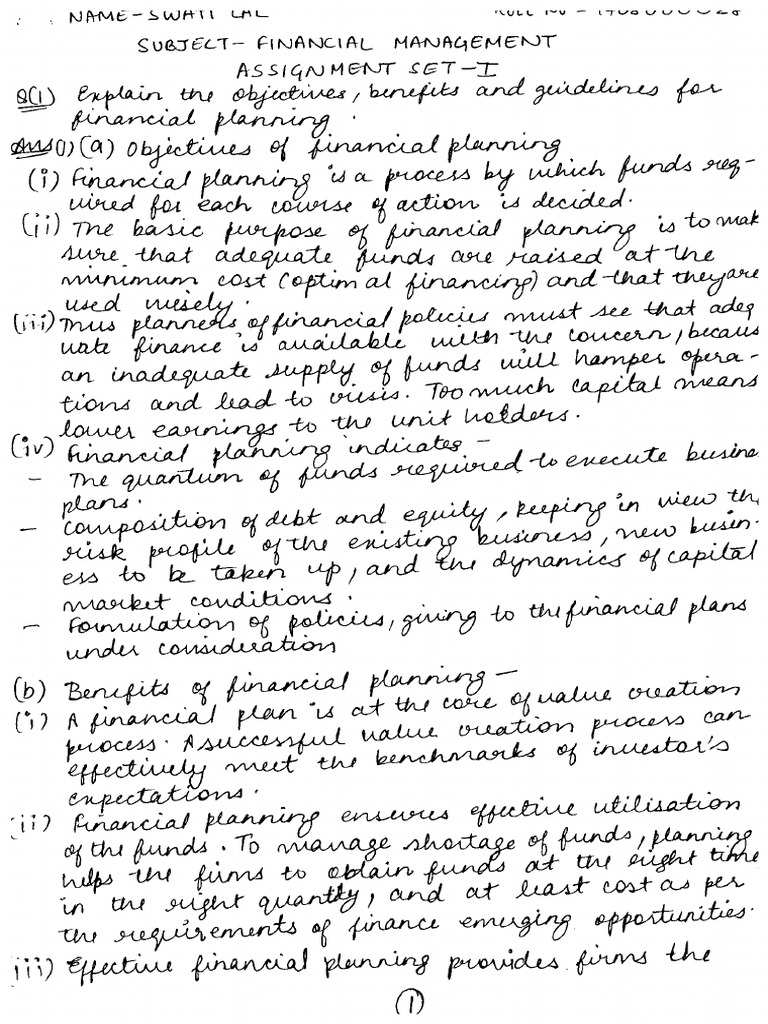 NAME-SWATI LAL
SUBJECT- FINANCIAL MANAGEMENT
ASSIGNMENT SET-I
Q(1) Explain the objectives, benefits and guidelines for
financial planning.
Ans(1) (a) Objectives of financial planning
(i) Financial planning is a process by which funds req-
uired for each course of action is decided.
(ii) The basic purpose of financial planning is to mak
sure that adequate funds are raised at the
minimum cost (optimal financing) and that they are
used wisely.
(iii) Thus planners of financial policies must see that adeq
uate finance is available with the concern, becaus
an inadequate supply of funds will hamper opera-
tions and lead to crisis. Too much capital means
lower earnings to the unit holders.
(iv) Financial planning indicates-
- The quantum of funds required to execute busine
plans.
- Composition of debt and equity, keeping in view th
risk profile of the existing business, new busin-
ess to be taken up, and the dynamics of capital
market conditions.
- Formulation of policies, giving to the financial plans
under consideration
(b) Benefits of financial planning-
(i) A financial plan is at the core of value creation
process. A successful value creation process can
effectively meet the benchmarks of investor's
expectations.
(ii) Financial planning ensures effective utilisation
of the funds. To manage shortage of funds, planning
helps the firms to obtain funds at the right time
in the right quantity, and at least cost as per
the requirements of finance emerging opportunities.
iii) Effective financial planning provides firms the
1